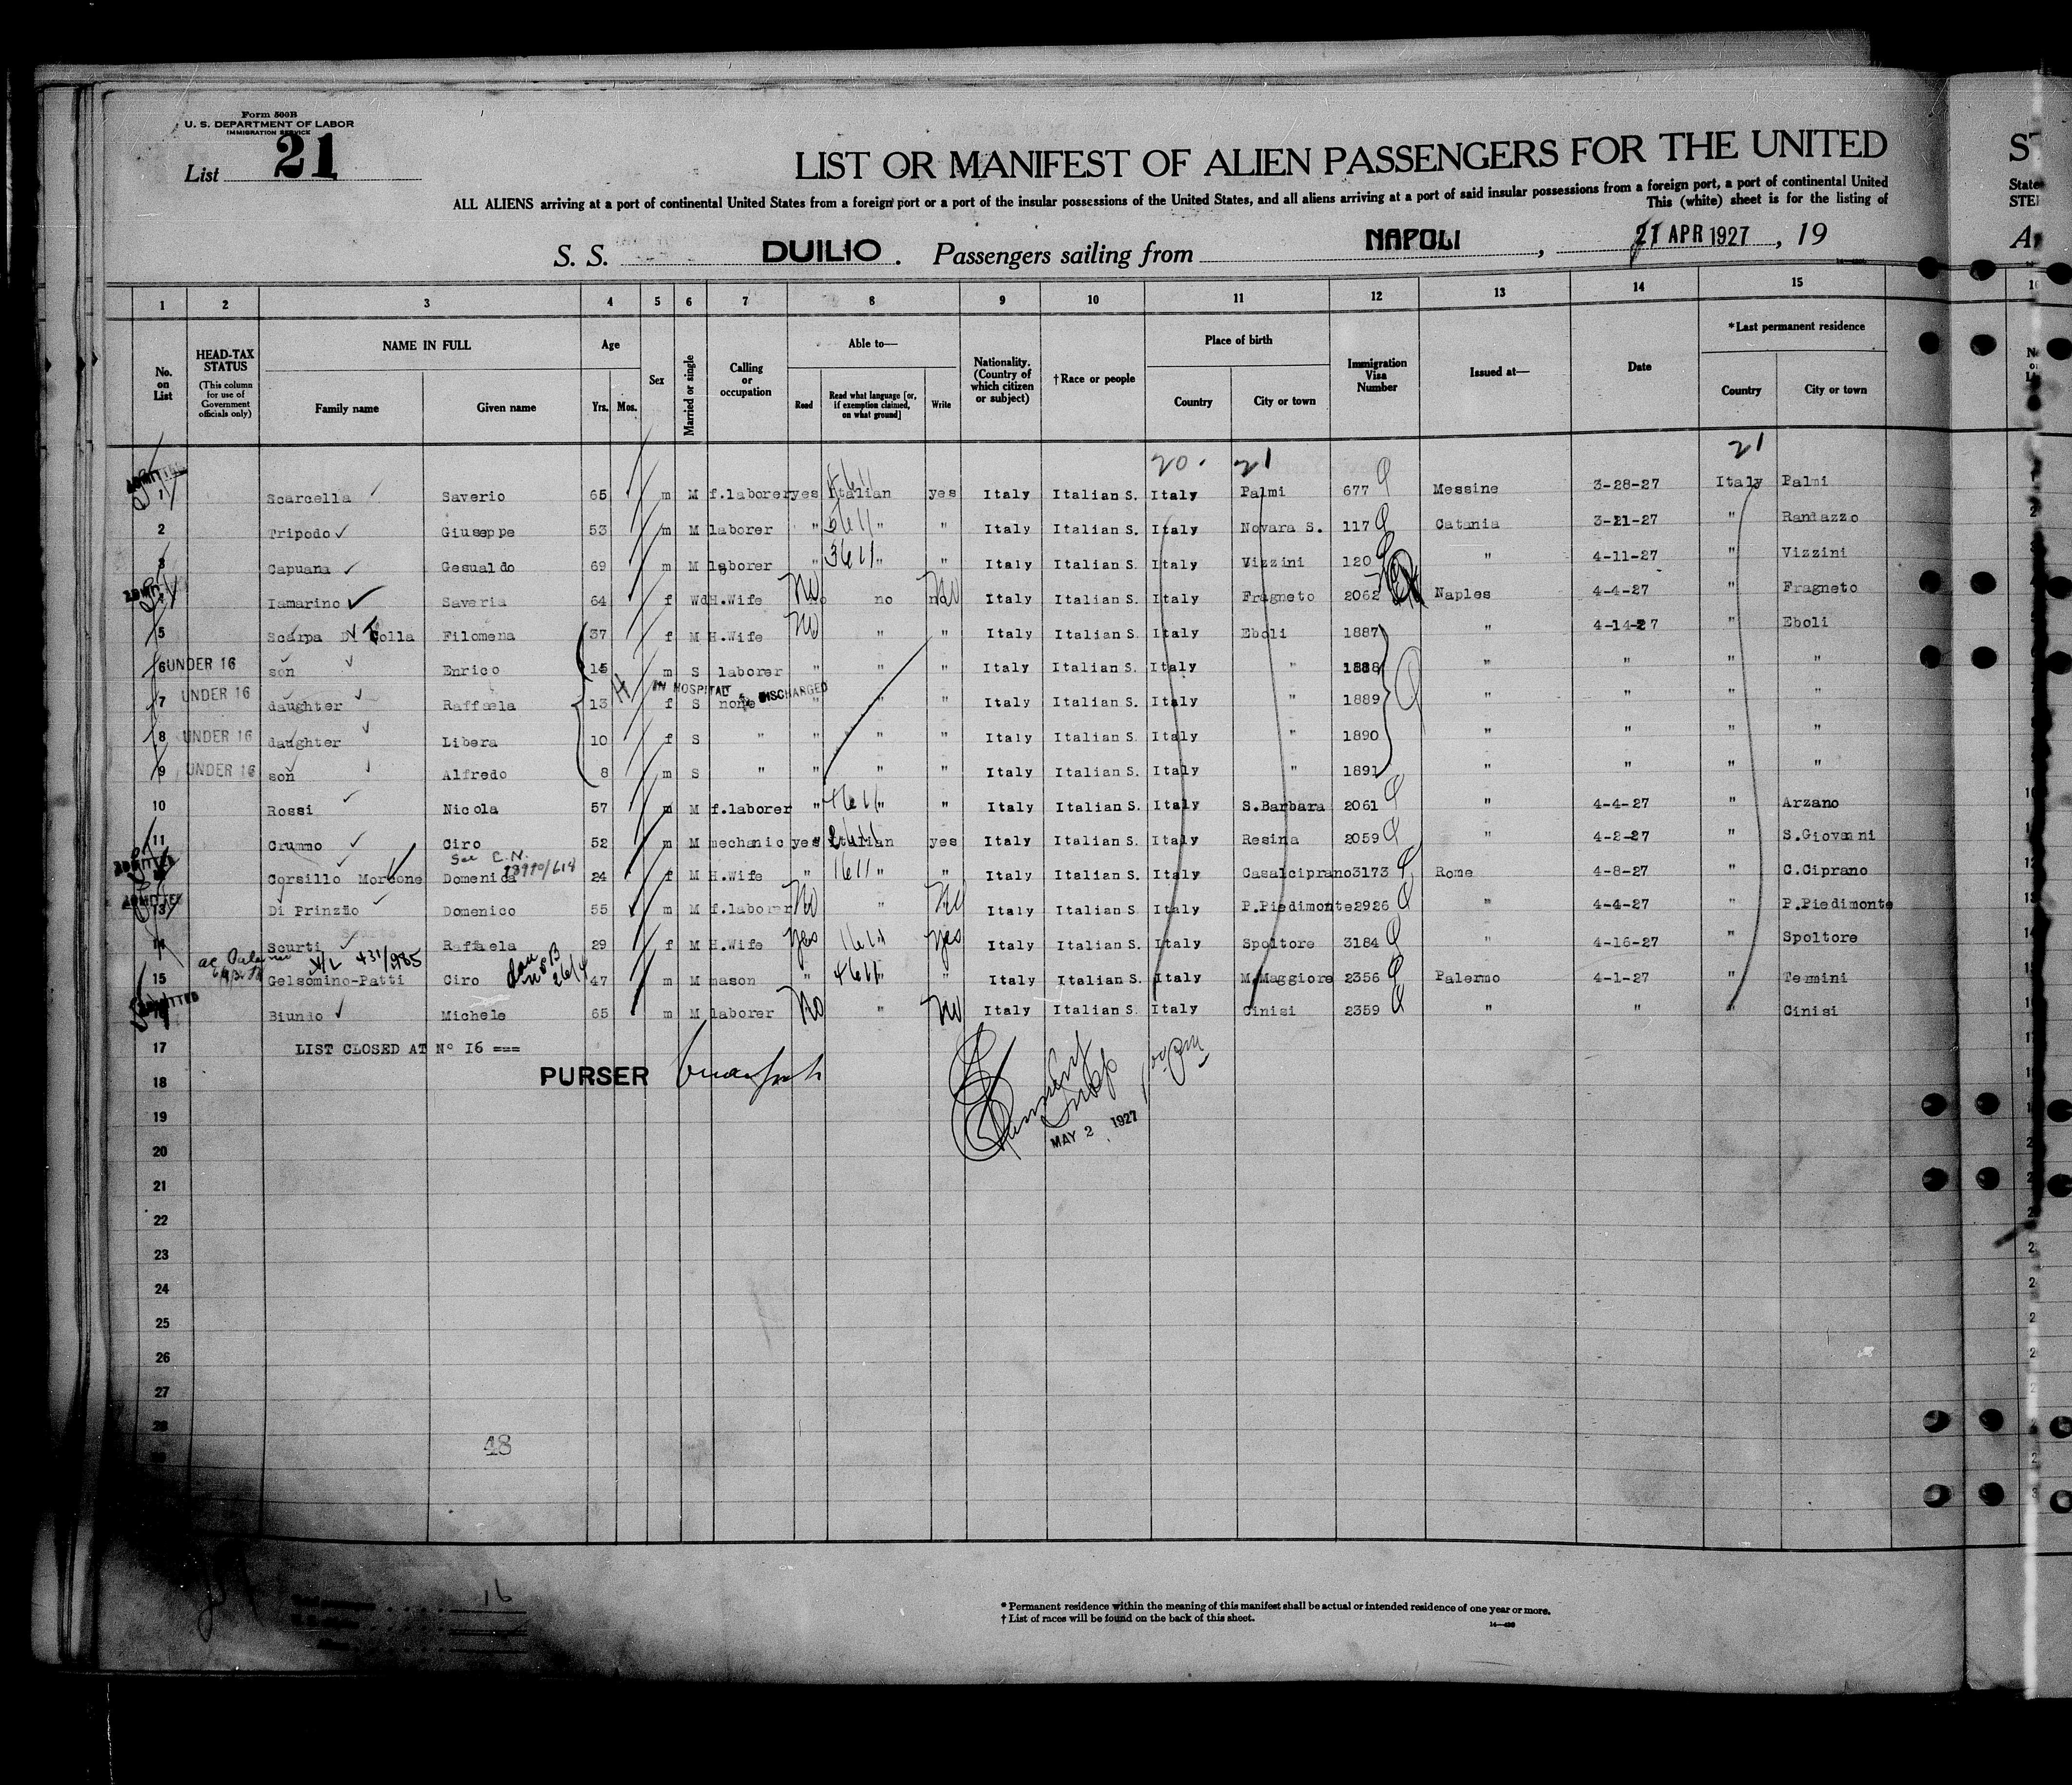 Form 500B
U. S. DEPARTMENT OF LABOR
IMMIGRATION SERVICE
List 21
LIST OR MANIFEST OF ALIEN PASSENGERS FOR THE UNITED
ALL ALIENS arriving at a port of continental United States from a foreign port or a port of the insular possessions of the United States, and all aliens arriving at a port of said insular possessions from a foreign port, a port of continental United
This (white) sheet is for the listing of
S. S. DUILIO. Passengers sailing from NAPOLI, 21 APR 1927, 19
1 2 3 4 5 6 7 8 9 10 11 12 13 14 15
No. on List
HEAD-TAX STATUS (This column for use of Government officials only)
NAME IN FULL Family name Given name
Age Yrs. Mos.
Sex
Married or single
Calling or occupation
Able to— Read Read what language [or, if exemption claimed, on what ground] Write
Nationality. (Country of which citizen or subject)
†Race or people
Place of birth Country City or town
Immigration Visa Number
Issued at—
Date
*Last permanent residence Country City or town
20. 21 21
ADMITTED 1 Scarcella Saverio 65 m M f.laborer yes Italian yes Italy Italian S. Italy Palmi 677 Messine 3-28-27 Italy Palmi
2 Tripodo Giuseppe 53 m M laborer " " " Italy Italian S. Italy Novara S. 117 Catania 3-21-27 " Randazzo
3 Capuana Gesualdo 69 m M laborer " " " Italy Italian S. Italy Vizzini 120 " 4-11-27 " Vizzini
4 Iamarino Saveria 64 f Wd H.Wife No no no Italy Italian S. Italy Fragneto 2062 Naples 4-4-27 " Fragneto
5 Scarpa Filomena 37 f M H.Wife No " " Italy Italian S. Italy Eboli 1887 " 4-14-27 " Eboli
6 UNDER 16 son Enrico 15 m S laborer " " " Italy Italian S. Italy " 1888 " " " "
7 UNDER 16 daughter Raffaela 13 IN HOSPITAL & DISCHARGED f S none " " " Italy Italian S. Italy " 1889 " " " "
8 UNDER 16 daughter Libera 10 f S " " " " Italy Italian S. Italy " 1890 " " " "
9 UNDER 16 son Alfredo 8 m S " " " " Italy Italian S. Italy " 1891 " " " "
10 Rossi Nicola 57 m M f.laborer " " " Italy Italian S. Italy S.Barbara 2061 " 4-4-27 " Arzano
11 Crummo Ciro 52 m M mechanic yes Italian yes Italy Italian S. Italy Resina 2059 " 4-2-27 " S.Giovanni
See C.N.
ADMITTED Corsillo Morcone Domenica 24 f M H.Wife " " " Italy Italian S. Italy Casalciprano 3173 Rome 4-8-27 " C.Ciprano
ADMITTED 13 Di Prinzio Domenico 55 m M f.laborer No " No Italy Italian S Italy P.Piedimonte 2926 " 4-4-27 " P.Piedimonte
14 Scurti Raffaela 29 f M H.Wife yes yes Italy Italian S Italy Spoltore 3184 " 4-16-27 " Spoltore
V/L 431/985
15 Gelsomino-Patti Ciro 47 m M mason " " Italy Italian S. Italy M.Maggiore 2356 Palermo 4-1-27 " Termini
ADMITTED 16 Biundo Michele 65 m M laborer No " No Italy Italian S. Italy Cinisi 2359 " " " Cinisi
17 LIST CLOSED AT N° 16 ===
18 PURSER
19
MAY 2 1927
20
21
22
23
24
25
26
27
28
48
16
* Permanent residence within the meaning of this manifest shall be actual or intended residence of one year or more.
† List of races will be found on the back of this sheet.